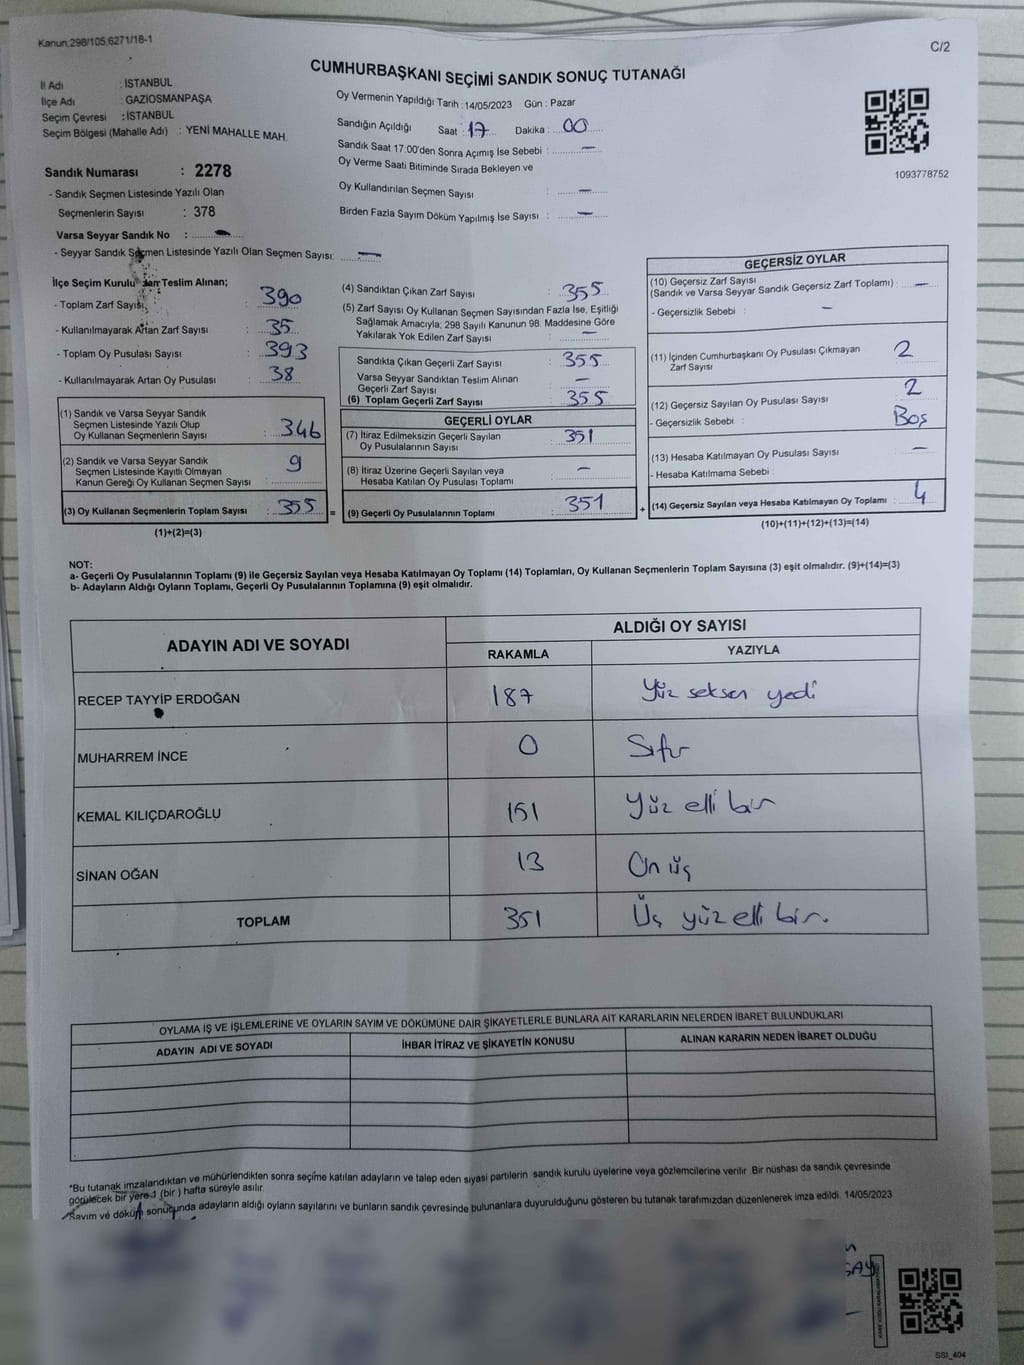 Kanun,298/105,6271/18-1
C/2
CUMHURBAŞKANI SEÇİMİ SANDIK SONUÇ TUTANAĞI
İl Adı : İSTANBUL
İlçe Adı : GAZİOSMANPAŞA
Seçim Çevresi : İSTANBUL
Seçim Bölgesi (Mahalle Adı) : YENİ MAHALLE MAH.
Oy Vermenin Yapıldığı Tarih :14/05/2023 Gün : Pazar
Sandığın Açıldığı Saat :17 Dakika : 00
Sandık Saat 17:00'den Sonra Açımış İse Sebebi : —
Oy Verme Saati Bitiminde Sırada Bekleyen ve
Oy Kullandırılan Seçmen Sayısı : —
Birden Fazla Sayım Döküm Yapılmış İse Sayısı : —
1093778752
Sandık Numarası : 2278
- Sandık Seçmen Listesinde Yazılı Olan
Seçmenlerin Sayısı : 378
Varsa Seyyar Sandık No : —
- Seyyar Sandık Seçmen Listesinde Yazılı Olan Seçmen Sayısı: —
İlçe Seçim Kurulu'ndan Teslim Alınan;
- Toplam Zarf Sayısı : 390
- Kullanılmayarak Artan Zarf Sayısı : 35
- Toplam Oy Pusulası Sayısı : 393
- Kullanılmayarak Artan Oy Pusulası : 38
(1) Sandık ve Varsa Seyyar Sandık
Seçmen Listesinde Yazılı Olup
Oy Kullanan Seçmenlerin Sayısı : 346
(2) Sandık ve Varsa Seyyar Sandık
Seçmen Listesinde Kayıtlı Olmayan
Kanun Gereği Oy Kullanan Seçmen Sayısı : 9
(3) Oy Kullanan Seçmenlerin Toplam Sayısı : 355 =
(1)+(2)=(3)
(4) Sandıktan Çıkan Zarf Sayısı : 355
(5) Zarf Sayısı Oy Kullanan Seçmen Sayısından Fazla İse, Eşitliği
Sağlamak Amacıyla; 298 Sayılı Kanunun 98. Maddesine Göre
Yakılarak Yok Edilen Zarf Sayısı : —
Sandıkta Çıkan Geçerli Zarf Sayısı : 355
Varsa Seyyar Sandıktan Teslim Alınan
Geçerli Zarf Sayısı : —
(6) Toplam Geçerli Zarf Sayısı : 355
GEÇERLİ OYLAR
(7) İtiraz Edilmeksizin Geçerli Sayılan
Oy Pusulalarının Sayısı : 351
(8) İtiraz Üzerine Geçerli Sayılan veya
Hesaba Katılan Oy Pusulası Toplamı : —
(9) Geçerli Oy Pusulalarının Toplamı : 351 +
GEÇERSİZ OYLAR
(10) Geçersiz Zarf Sayısı
(Sandık ve Varsa Seyyar Sandık Geçersiz Zarf Toplamı) : —
- Geçersizlik Sebebi : —
(11) İçinden Cumhurbaşkanı Oy Pusulası Çıkmayan
Zarf Sayısı 2
(12) Geçersiz Sayılan Oy Pusulası Sayısı : 2
- Geçersizlik Sebebi : Boş
(13) Hesaba Katılmayan Oy Pusulası Sayısı : —
- Hesaba Katılmama Sebebi :
(14) Geçersiz Sayılan veya Hesaba Katılmayan Oy Toplamı : 4
(10)+(11)+(12)+(13)=(14)
NOT:
a- Geçerli Oy Pusulalarının Toplamı (9) ile Geçersiz Sayılan veya Hesaba Katılmayan Oy Toplamı (14) Toplamları, Oy Kullanan Seçmenlerin Toplam Sayısına (3) eşit olmalıdır. (9)+(14)=(3)
b- Adayların Aldığı Oyların Toplamı, Geçerli Oy Pusulalarının Toplamına (9) eşit olmalıdır.
ADAYIN ADI VE SOYADI
ALDIĞI OY SAYISI
RAKAMLA YAZIYLA
RECEP TAYYİP ERDOĞAN 187 Yüz seksen yedi
MUHARREM İNCE 0 Sıfır
KEMAL KILIÇDAROĞLU 151 Yüz elli bir
SİNAN OĞAN 13 On üç
TOPLAM 351 Üç yüz elli bir.
OYLAMA İŞ VE İŞLEMLERİNE VE OYLARIN SAYIM VE DÖKÜMÜNE DAİR ŞİKAYETLERLE BUNLARA AİT KARARLARIN NELERDEN İBARET BULUNDUKLARI
ADAYIN ADI VE SOYADI İHBAR İTİRAZ VE ŞİKAYETİN KONUSU ALINAN KARARIN NEDEN İBARET OLDUĞU
*Bu tutanak imzalandıktan ve mühürlendikten sonra seçime katılan adayların ve talep eden siyasi partilerin sandık kurulu üyelerine veya gözlemcilerine verilir. Bir nüshası da sandık çevresinde
görülecek bir yere 1 (bir ) hafta süreyle asılır.
Sayım ve döküm sonucunda adayların aldığı oyların sayılarını ve bunların sandık çevresinde bulunanlara duyurulduğunu gösteren bu tutanak tarafımızdan düzenlenerek imza edildi. 14/05/2023
SSI_404